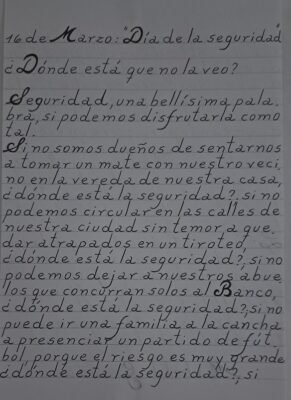 16 de Marzo: "Día de la seguridad"
¿Dónde está que no la veo?
Seguridad, una bellísima pala,
bra, si podemos disfrutarla como
tal.
Si no somos dueños de sentarnos
a tomar un mate con nuestro veci,
no en la vereda de nuestra casa,
¿dónde está la seguridad?, si no
podemos circular en las calles de
nuestra ciudad sin temor a que,
dar atrapados en un tiroteo,
¿dónde está la seguridad?, si no
podemos dejar a nuestros abue,
los que concurran solos al Banco,
¿dónde está la seguridad?, si no
puede ir una familia a la cancha
a presenciar un partido de fút,
bol, porque el riesgo es muy grande
¿dónde está la seguridad?, si